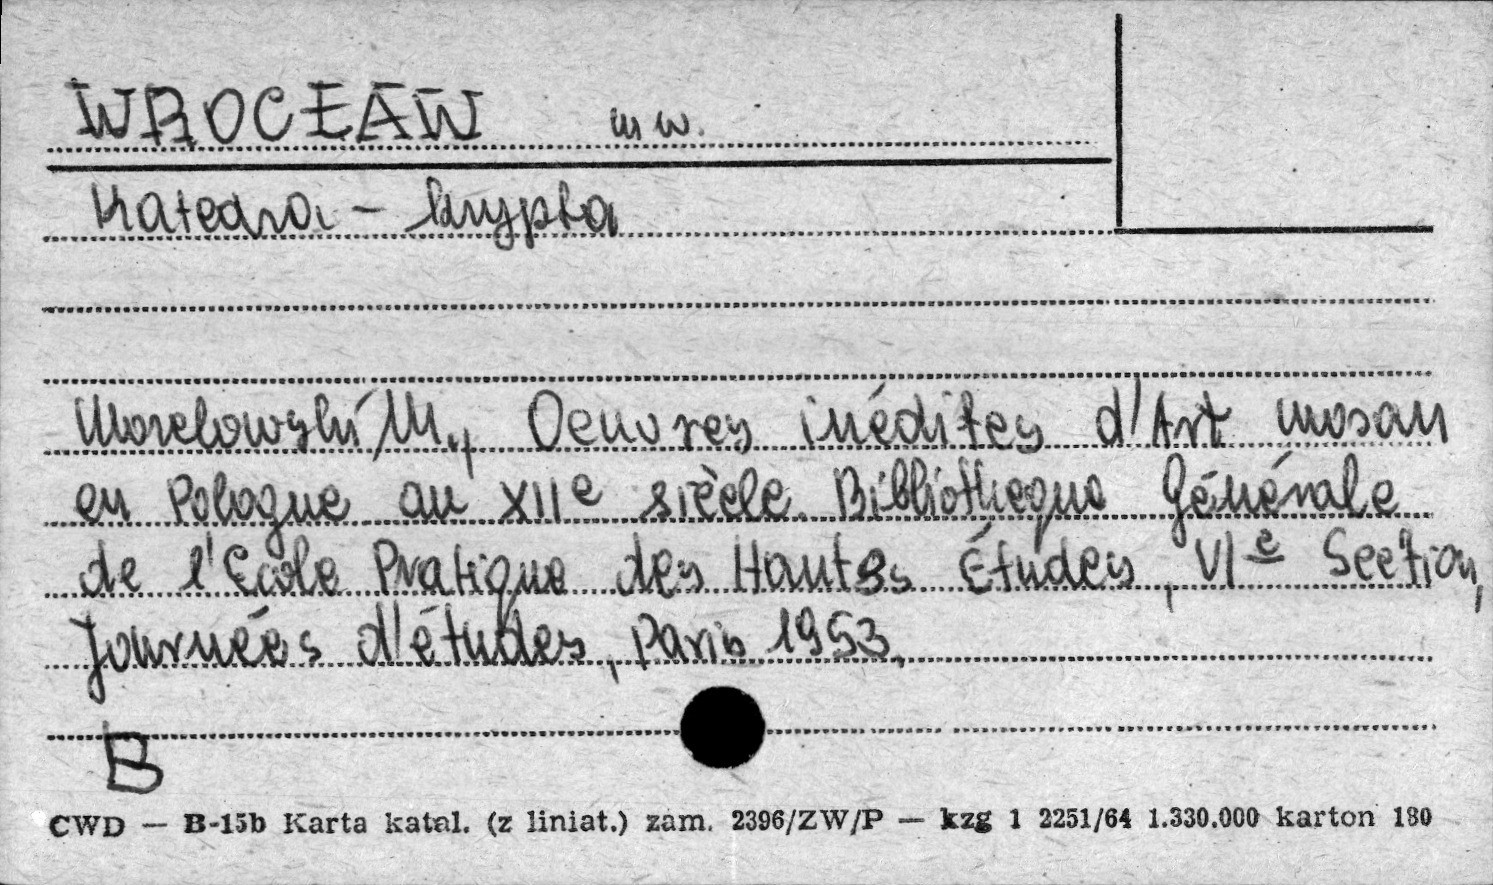 WROCŁAW m w.
Katedra - krypta
Morelowski M., Oeuvres inédites d'Art mosan
en Pologne au XIIe siècle. Bibliotheque Générale
de l'Ecole Pratique des Hautes Études, VIe Section,
Journées d'études, Paris 1953.
B
CWD — B-15b Karta katal. (z liniat.) zam. 2396/ZW/P — kzg 1 2251/64 1.330.000 karton 180